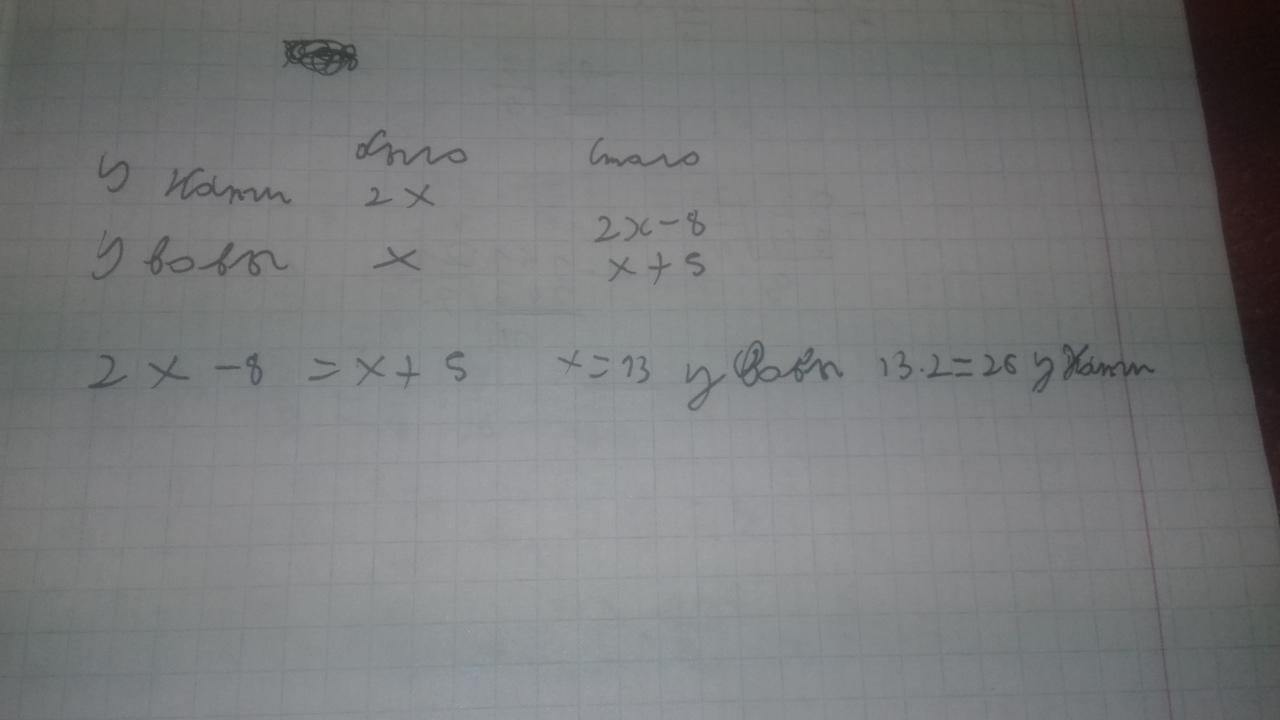 было стало
у Кати 2x
2x-8
у вовы x x+5
2x-8=x+5 x=13 у Вовы 13·2=26 у Кати